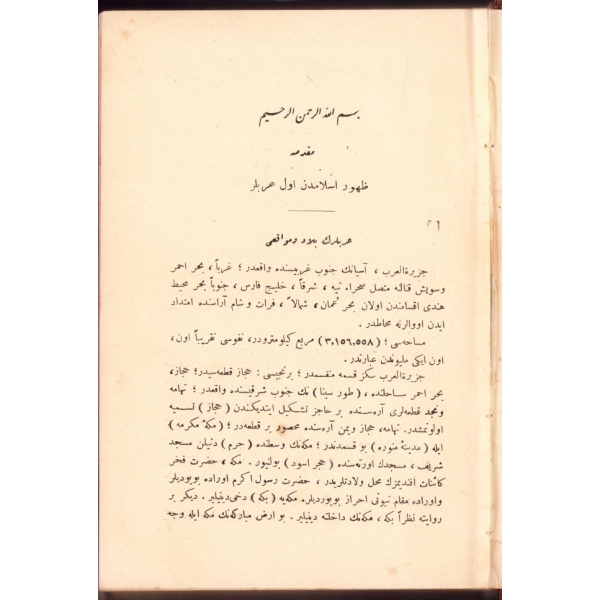 بسم الله الرحمن الرحيم
مقدمه
ظهور اسلامدن اول عربلر
عربلرك بلاد ومواقعى
جزيرةالعرب ، آسيانك جنوب غربيسنده واقعدر ؛ غرباً ، بحر احمر
وسويش قنالنه متصل صحراء تيه ، شرقاً ، خليج فارس ، جنوباً بحر محيط
هندى اقسامندن اولان بحر عُمان ، شمالاً ، فرات و شام آراسنده امتداد
ايدن اووالرله محاطدر .
مساحه‌سى ؛ (٣,١٥٦,٥٥٨) مربع كيلومترودر ، نفوسى تقريباً اون ،
اون ايكى مليوندن عبارتدر .
جزيرةالعرب سكز قسمه منقسمدر ؛ برنجيسى : حجاز قطعه‌سيدر ؛ حجاز ،
بحر احمر ساحلنده ، (طور سينا) نك جنوب شرقيسنده واقعدر ؛ تهامه
ونجد قطعه‌لرى آره‌سنده بر حاجز تشكيل ايتديكندن (حجاز) تسميه
اولونمشدر . تهامه ، حجاز ويمن آره‌سنده محصور بر قطعه‌در ؛ (مكهٔ مكرمه)
ايله (مدينهٔ منوره) بو قسمدندر ؛ مكه‌نك وسطنده (حرم) دنيلن مسجد
شريف ، مسجدك اورته‌سنده (حجر اسود) بولنيور . مكه ، حضرت فخر
كائنات افنديمزك محل ولادتلريدر ، حضرت رسول اكرم اوراده بويوديلر
واوراده مقام نبوتى احراز بويورديلر . مكه‌يه (بكه) دخى ديينلير . ديكر بر
روايته نظراً بكه ، مكه‌نك داخلنه ديينلير . بو ارض مباركه‌نك مكه ايله وجه